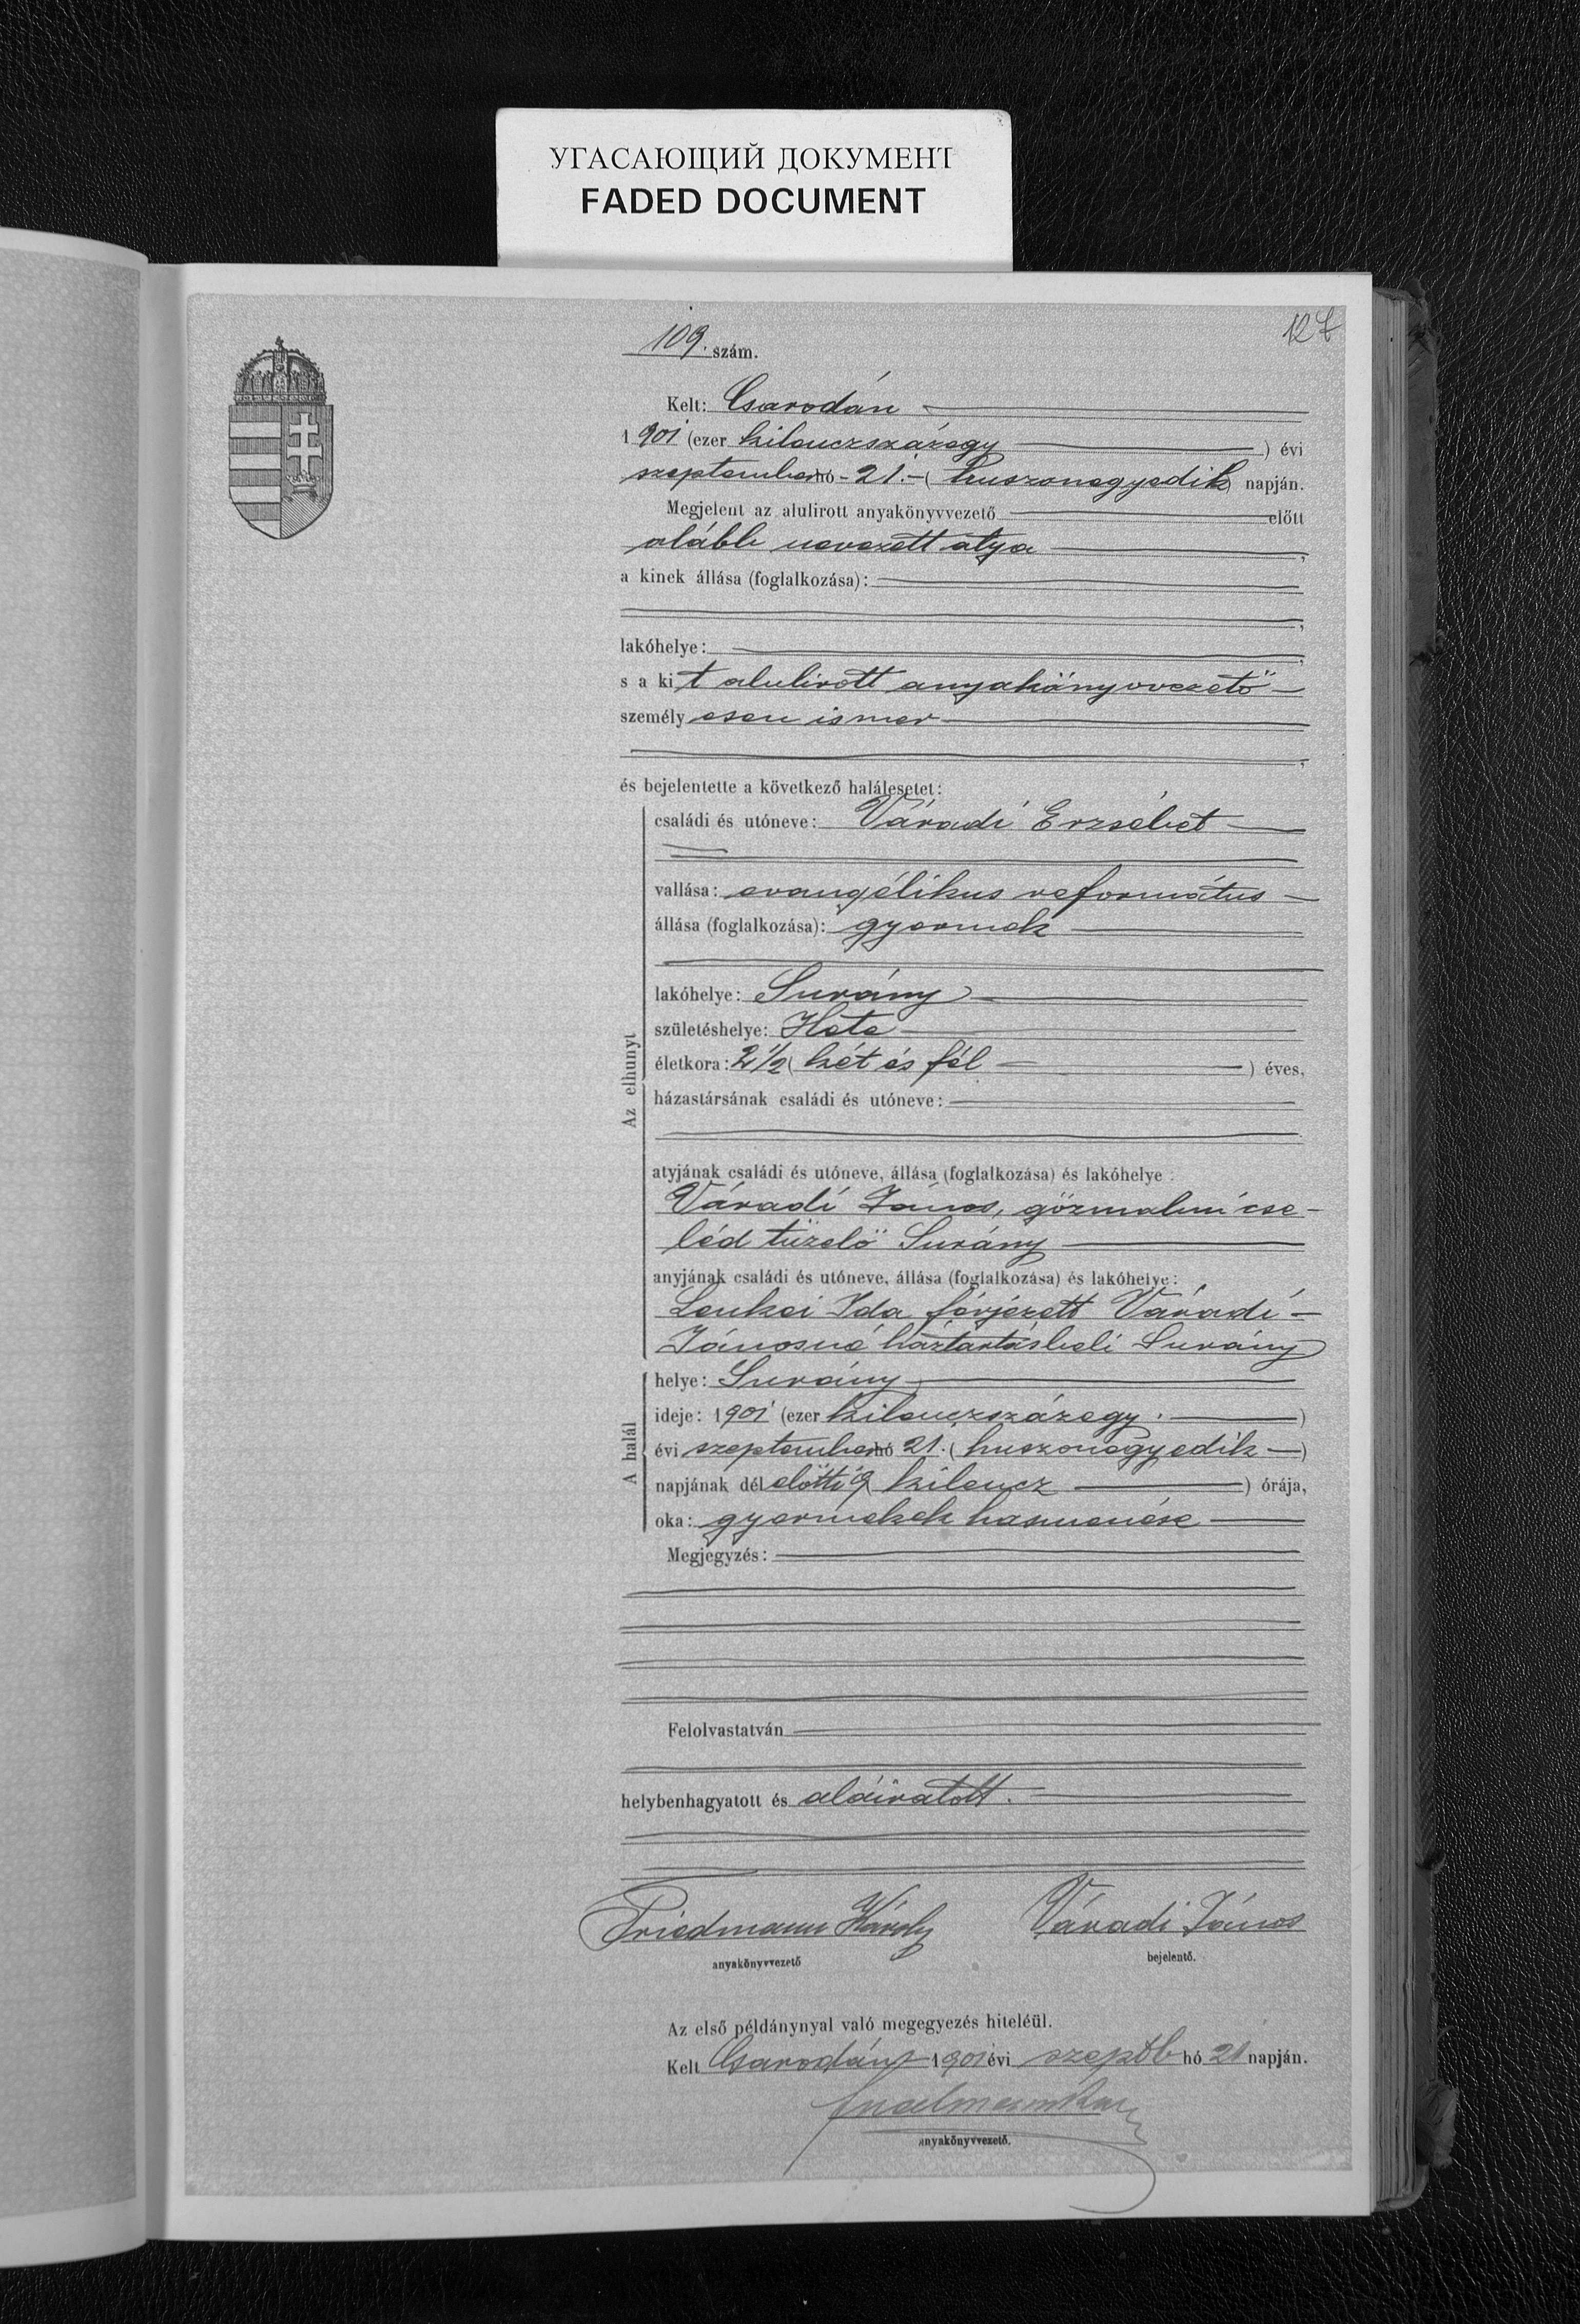 УГАСАЮЩИЙ ДОКУМЕНТ
FADED DOCUMENT
127
109. szám.
Kelt: Csarodán
1901 (ezer kilenczszázegy ) évi
szeptember hó - 21. - ( huszonegyedik ) napján.
Megjelent az alulirott anyakönyvvezető előtt
alább nevezett atya ,
a kinek állása (foglalkozása):
,
lakóhelye: ,
s a kit alulirott anyakönyvvezető
személyesen ismer
,
és bejelentette a következő halálesetet:
Az elhunyt
családi és utóneve: Váradi Erzsébet
vallása: evangélikus református
állása (foglalkozása): gyermek
lakóhelye: Surány
születéshelye: Hete
életkora: 2 1/2 ( két és fél ) éves,
házastársának családi és utóneve:
atyjának családi és utóneve, állása (foglalkozása) és lakóhelye:
Váradi János, gőzmalmi cse-
léd tüzelő Surány
anyjának családi és utóneve, állása (foglalkozása) és lakóhelye:
Lenkei Ida férjezett Váradi
Jánosné háztartásbeli Surány
A halál
helye: Surány
ideje: 1901 (ezer kilenczszázegy. )
évi szeptember hó 21. ( huszonegyedik )
napjának délelőtti 9 ( kilencz ) órája,
oka: gyermekek hasmenése
Megjegyzés:
Felolvastatván
helybenhagyatott és aláiratott.
Friedmann Károly Váradi János
anyakönyvvezető bejelentő.
Az első példánynyal való megegyezés hiteléül.
Kelt Csarodán 1901 évi szeptb hó 21 napján.
anyakönyvvezető.